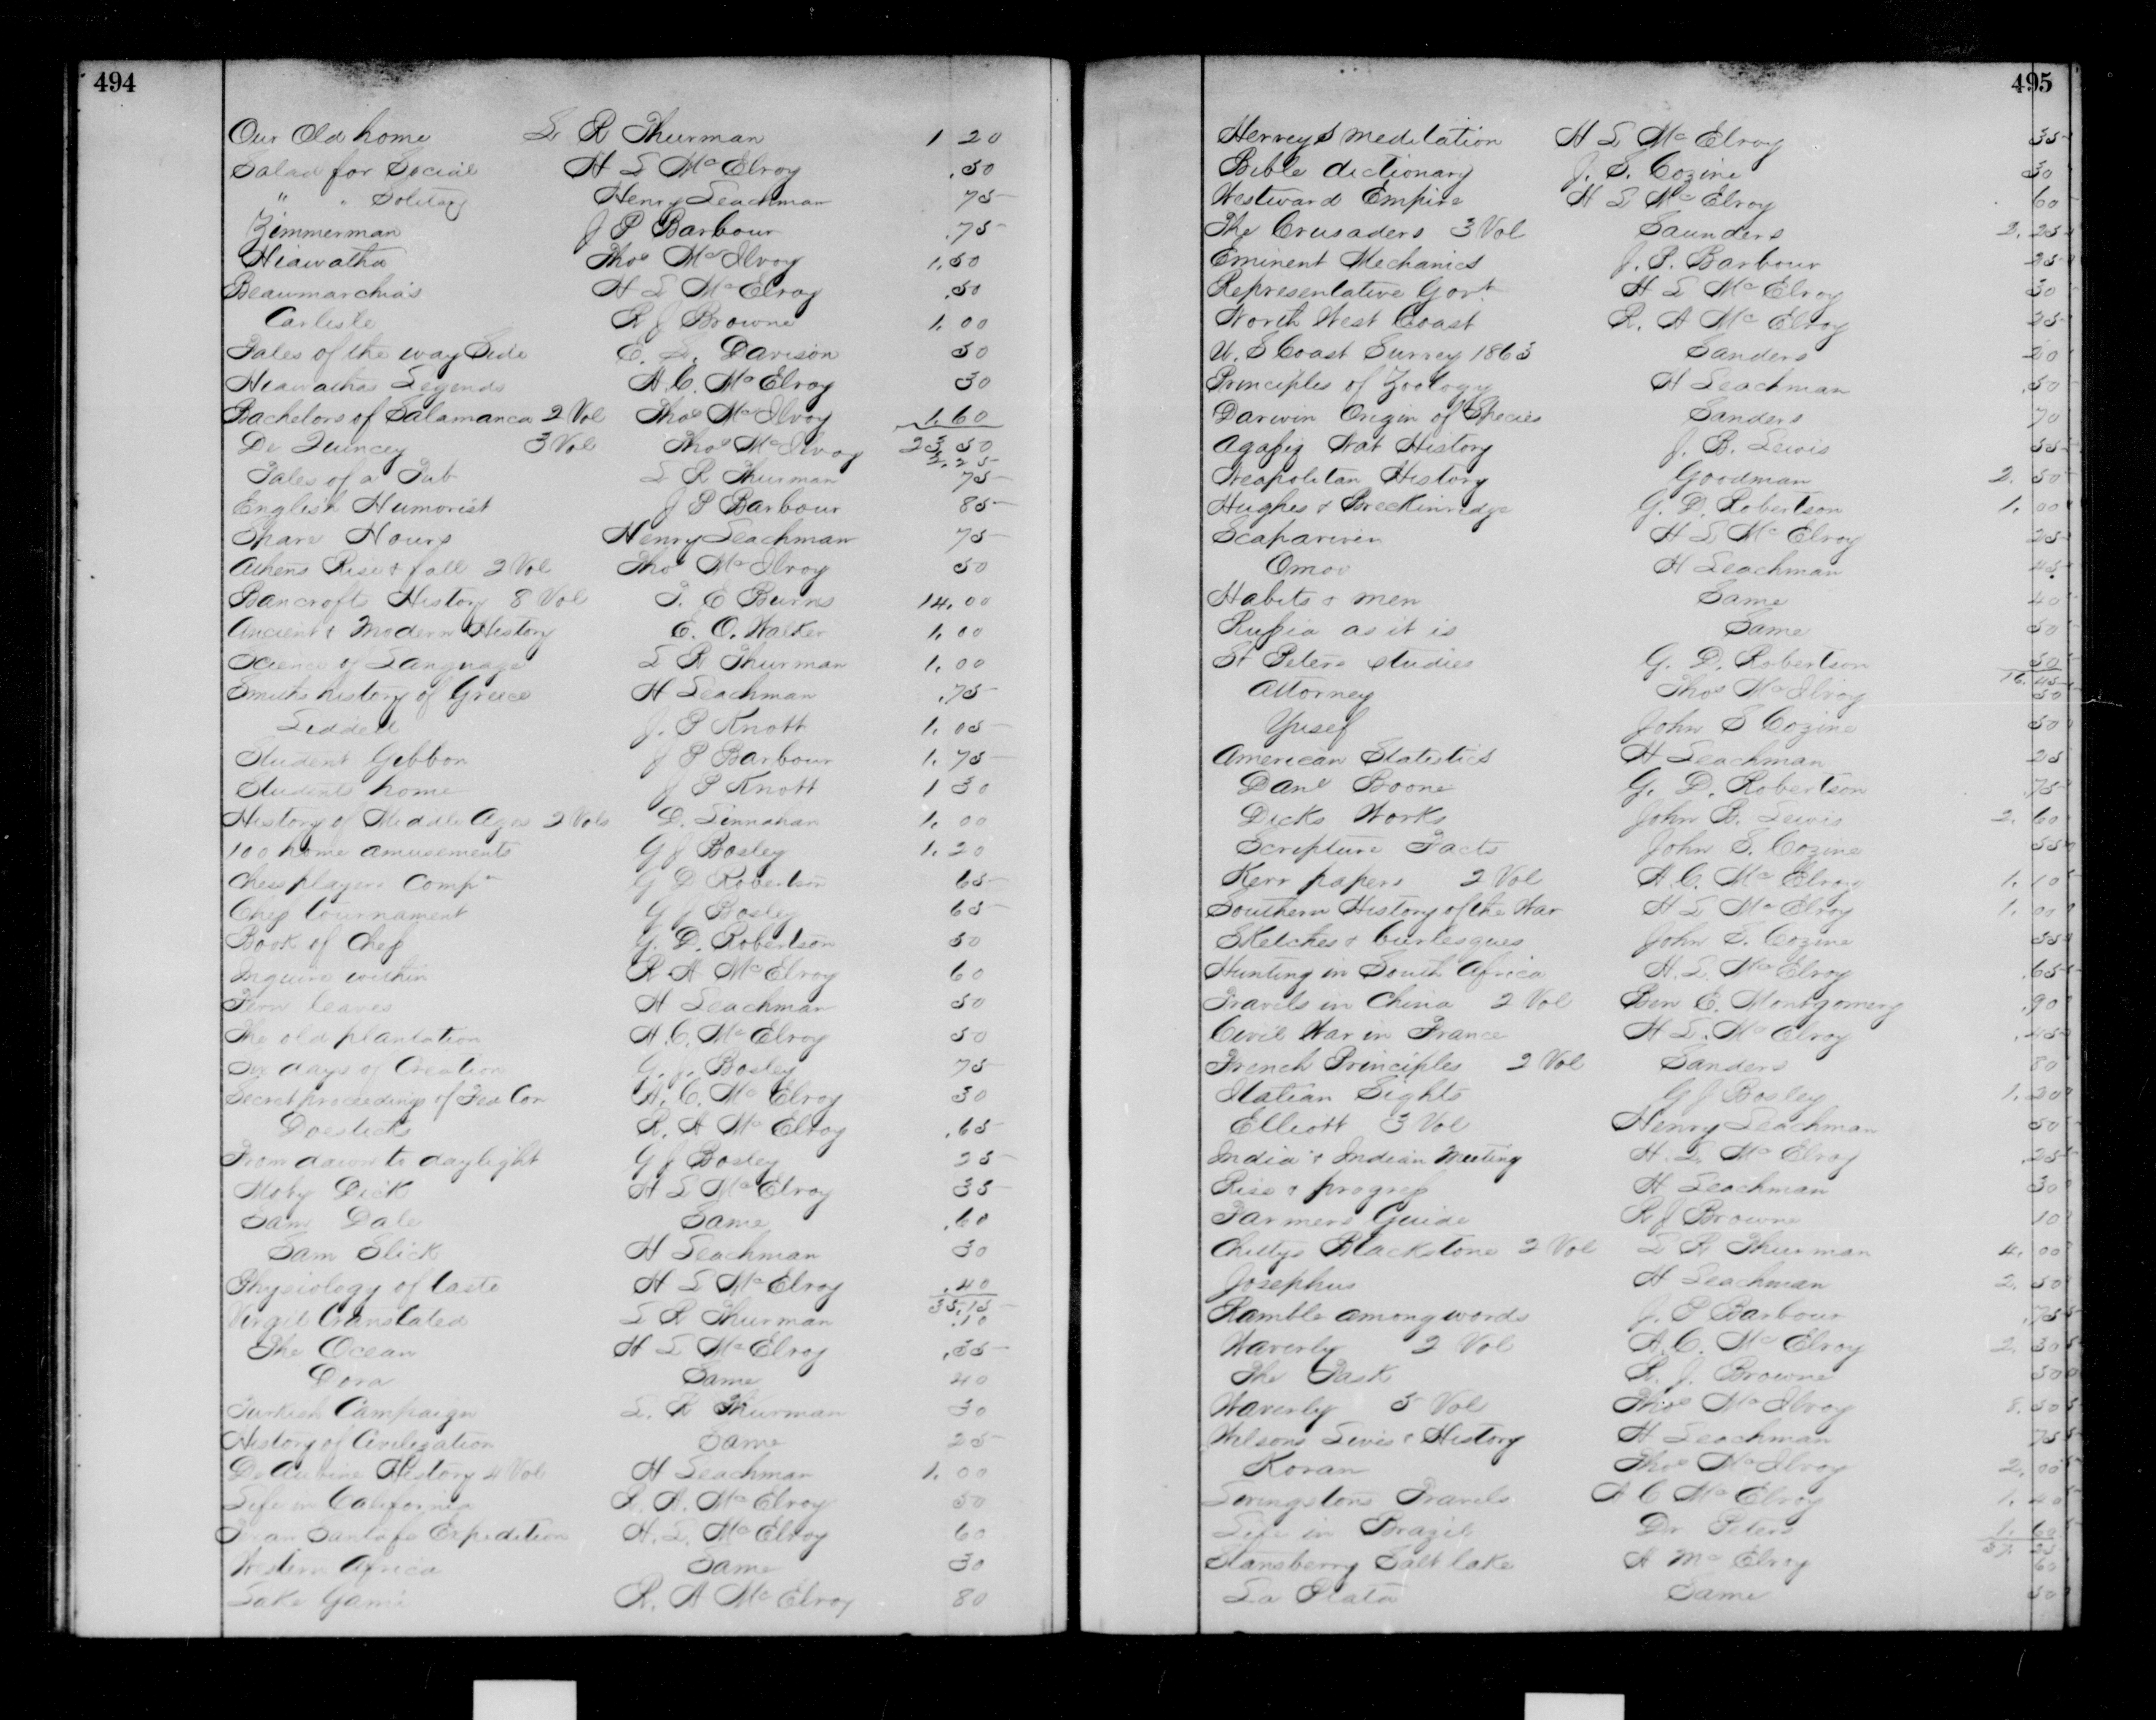 494
Our Old home L R Thurman 1 20
Salad for Social H L McElroy .50
" " Solitary Henry Leachman 75
Zimmerman J P Barbour .75
Hiawatha Thos McIlvoy 1.50
Beaumarchias H L McElroy .50
Carlisle R J Browne 1.00
Tales of the way Side E. L. Davison 50
Hiawathas Legends A. C. McElroy 30
Bachelors of Salamanca 2 Vol Thos McIlvoy 1.60
De Quincey 3 Vol Thos McIlvoy 23 50
2.25
Tales of a Tub L R Thurman 75
English Humorist J P Barbour 85
Spare Hours Henry Leachman 75
Athens Rise & fall 2 Vol Thos McIlvoy 50
Bancrofts History 8 Vol T. E Burns 14.00
Ancient & Modern History E. O. Walker 1.00
Science of Language L R Thurman 1.00
Smiths history of Greece H Leachman .75
Liddell J. P Knott 1.05
Student Gibbon J P Barbour 1.75
Students home J P Knott 1 30
History of Middle Ages 2 Vols D. Linnahan 1.00
100 home amusements G J Bosley 1.20
Chess players Comp G D Robertson 65
Chess tournament G J Bosley 65
Book of Chess G. D. Robertson 50
Inquire within R A McElroy 60
Fern leaves H Leachman 50
The old plantation A. C. McElroy 50
Six days of Creation G. J. Bosley 75
Secret proceedings of Fed Con A. C. McElroy 30
Doesticks R. A McElroy .65
From dawn to daylight G J Bosley 25
Moby Dick H L McElroy 35
Sam Dale Same .60
Sam Slick H Leachman 30
Physiology of taste H L McElroy .40
35.15
Virgil translated L R Thurman .10
The Ocean H L McElroy .35
Dora Same 40
Turkish Campaign L. R Thurman 30
History of Civilization Same 25
De Aubine History 4 Vol H Leachman 1.00
Life in California R. A. McElroy 50
Texan Santafe Expedition H. L. McElroy 60
Western Africa Same 30
Lake Gami R. A McElroy 80
495
Herveys meditation H L McElroy 35
Bible dictionary J. S. Cozine 30
Westward Empire H L McElroy 60
The Crusaders 3 Vol Saunders 2.25
Eminent Mechanics J. P. Barbour 25
Representative Govt H L McElroy 30
North West Coast R. A McElroy 25
U. S Coast Survey 1863 Sanders 20
Principles of Zoology H Leachman .50
Darwin Origin of Species Sanders 70
Agassiz Nat History J. B. Lewis 55
Neapolitan History Goodman 2.50
Hughes & Breckinridge G. D. Robertson 1.00
H L McElroy 25
Omoo H Leachman 45
Habits & men Same 40
Russia as it is Same 50
St Peters studies G. D. Robertson 50
16.45
Attorney Thos McIlvoy 50
Yusef John S Cozine 50
American Statistics H Leachman 25
Danl Boone G. D. Robertson .75
Dicks Works John B. Lewis 2.60
Scripture Facts John S. Cozine 55
Kerr papers 2 Vol A. C. McElroy 1.10
Southern History of the War H L McElroy 1.00
Sketches & burlesques John S. Cozine 55
Hunting in South Africa H. L. McElroy .65
Travels in China 2 Vol Ben E. Montgomery .90
Civil War in France H L. McElroy .45
French Principles 2 Vol Sanders 80
Italian Sights G J Bosley 1.20
Elliott 3 Vol Henry Leachman 50
India & Indian Meeting H. L. McElroy .25
Rise & progress H Leachman 30
Farmers Guide R J Browne 10
Chittys Blackstone 2 Vol L R Thurman 4.00
Josephus H Leachman 2.50
Ramble among words J. P Barbour .75
Waverly 2 Vol A. C. McElroy 2.30
The Task R. J. Browne 50
Waverly 5 Vol Thos McIlvoy 8.50
Wilsons Lewis & History H Leachman 75
Koran Thos McIlvoy 2.00
Livingstons Travels A C McElroy 1.40
Life in Brazil Dr Peters 1.60
37 25
Stansberry Salt lake A McElroy 60
La Plata Same 50